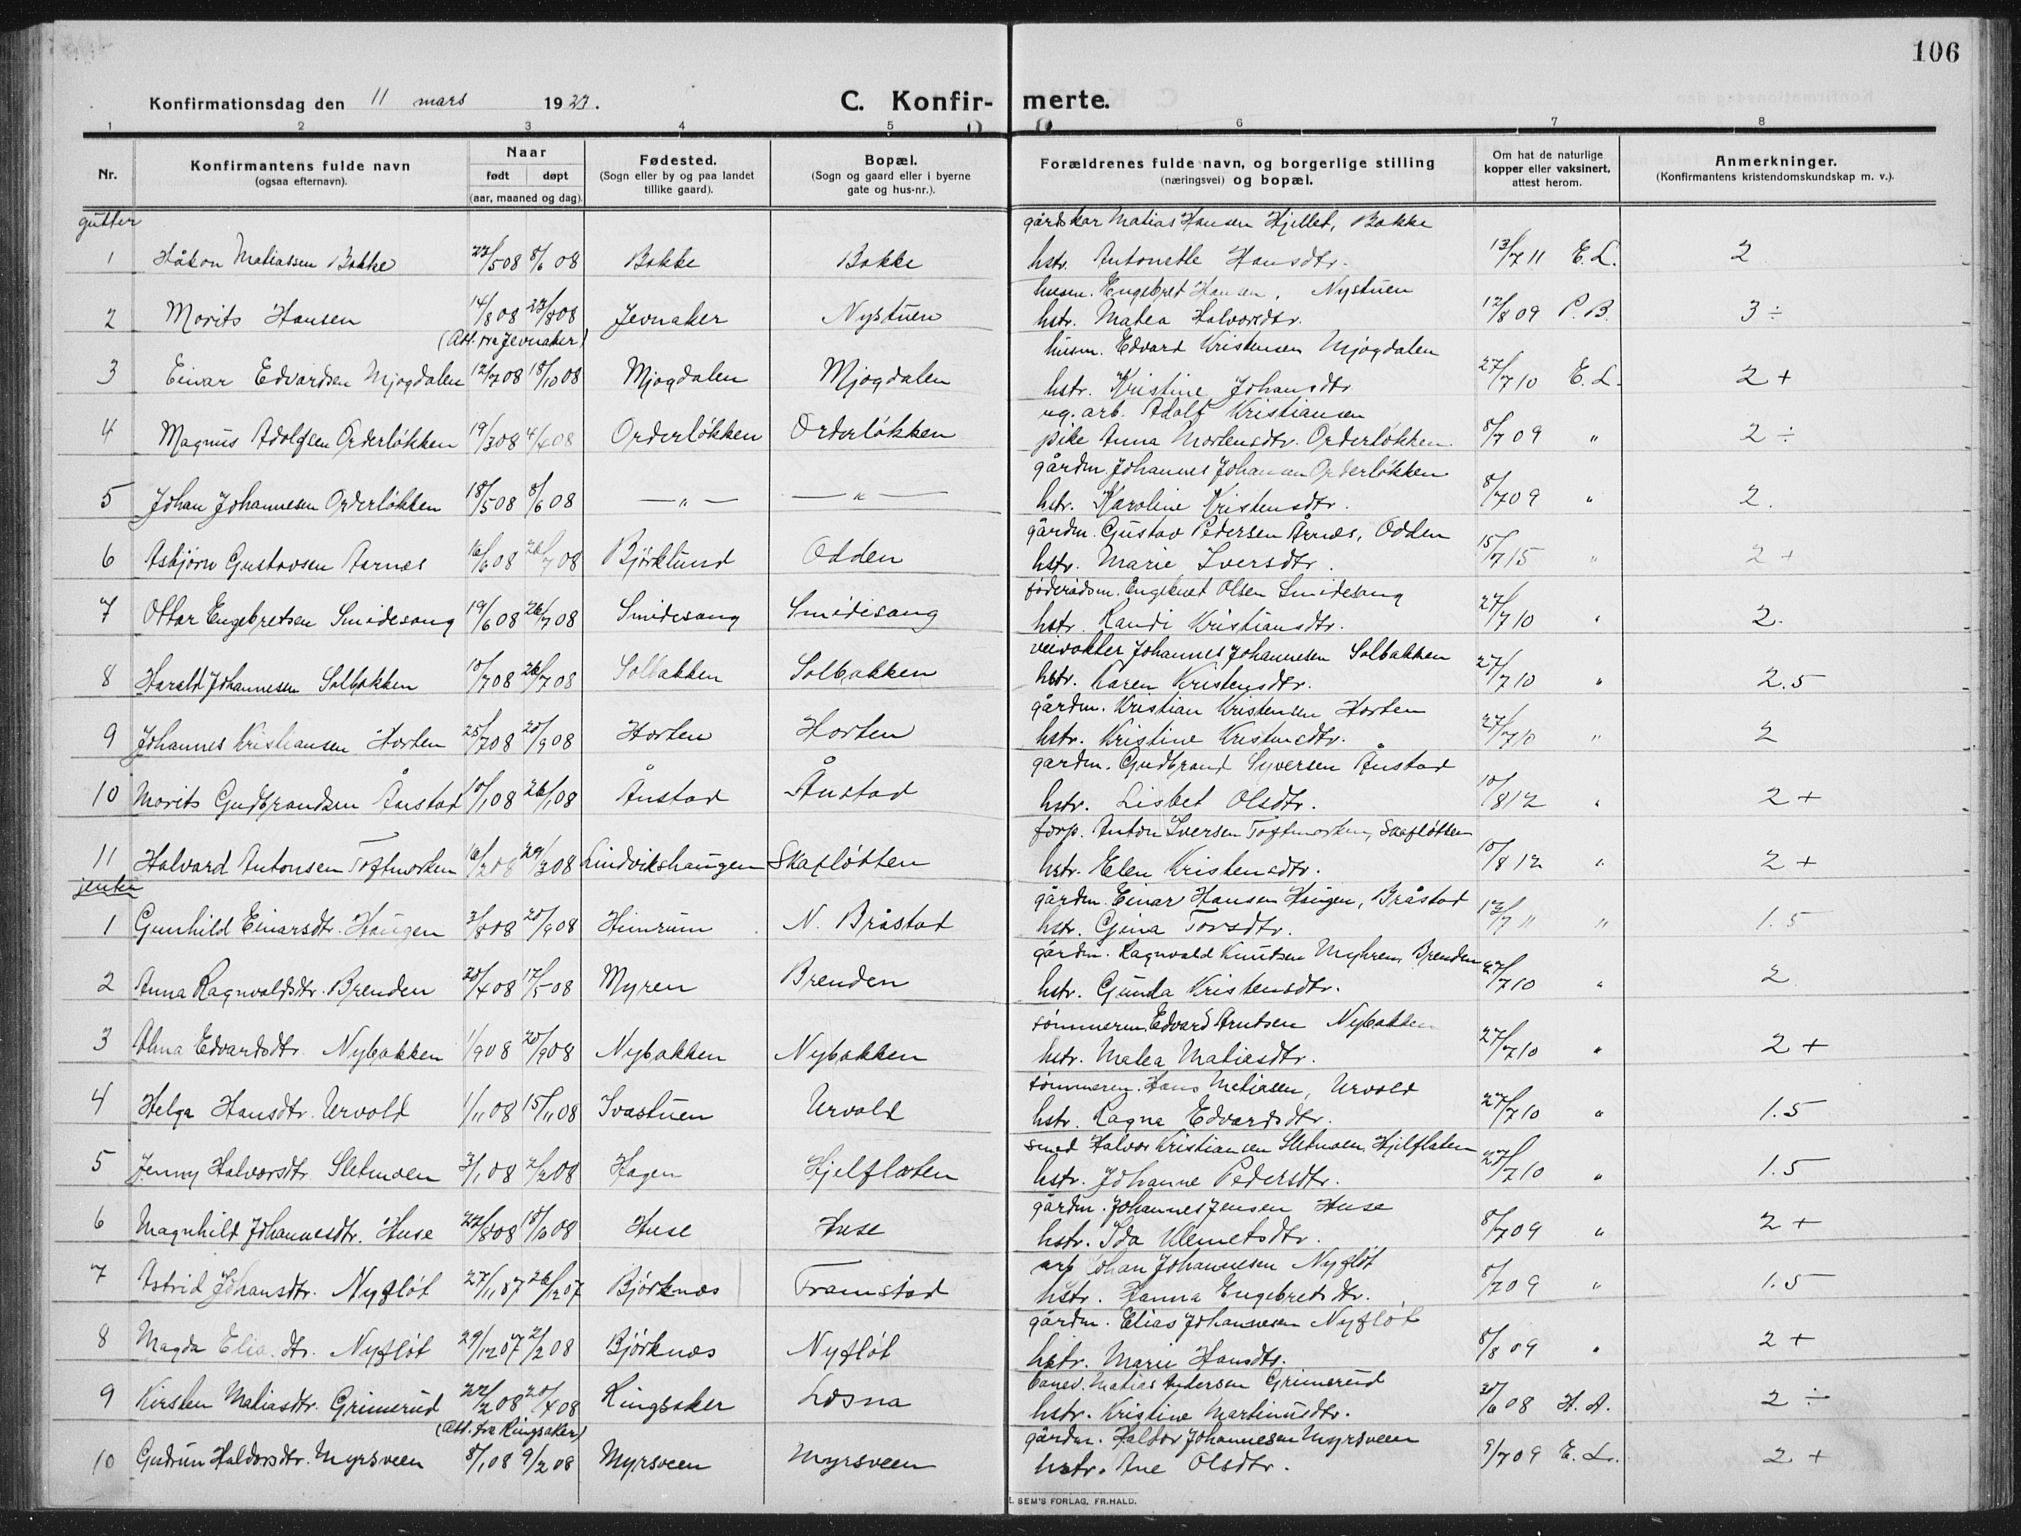 106
Konfirmationsdag den 11 mars 1923.
C. Konfirmerte.
1 2 3 4 5 6 7 8
Nr.
Konfirmantens fulde navn
(ogsaa efternavn).
Naar
født døpt
(aar, maaned og dag).
Fødested.
(Sogn eller by og paa landet
tillike gaard).
Bopæl.
(Sogn og gaard eller i byerne
gate og hus-nr.).
Forældrenes fulde navn, og borgerlige stilling
(næringsvei) og bopæl.
Om hat de naturlige
kopper eller vaksinert,
attest herom.
Anmerkninger.
(Konfirmantens kristendomskundskap m. v.).
gutter
gårdskar Matias Hansen Hjellet, Bakke
1 Håkon Matiassen Bakke 22/5 08 8/6 08 Bakke Bakke hstr. Antonette Hansdtr. 13/7 11 E. L. 2
husm. Engebret Hansen, Nystuen
2 Morits Hansen 14/8 08 23/8 08 Jevnaker Nystuen hstr. Matea Halvorsdtr. 12/8 09 P. B. 3 ÷
(Att. fra Jevnaker)
husm. Edvard Kristensen Mjøgdalen
3 Einar Edvardsen Mjøgdalen 12/7 08 18/10 08 Mjøgdalen Mjøgdalen hstr. Kristine Johansdtr. 27/7 10 E. L. 2 +
ug. arb. Adolf Kristiansen
4 Magnus Adolfsen Orderløkken 19/3 08 4/6 08 Orderløkken Orderløkken pike Anna Mortensdtr. Orderløkken 8/7 09 " 2 ÷
gårdm. Johannes Johansen Orderløkken
5 Johan Johannesen Orderløkken 18/5 08 8/6 08 — " — — " — hstr. Karoline Kristensdtr. 8/7 09 " 2.
gårdm. Gustav Pedersen Årnes, Odden
6 Asbjørn Gustavsen Aarnes 16/6 08 26/7 08 Bjørklund Odden hstr. Marie Iversdtr. 15/7 15 " 2 +
føderådsm. Engebret Olsen Smidesang
7 Ottar Engebretsen Smidesang 19/6 08 26/7 08 Smidesang Smidesang hstr. Randi Kristiansdtr. 27/7 10 " 2.
veivokter Johannes Johannesen Solbakken
8 Harald Johannesen Solbakken 10/7 08 26/7 08 Solbakken Solbakken hstr. Karen Kristensdtr. 27/7 10 " 2.5
gårdm. Kristian Kristensen Horten
9 Johannes Kristiansen Horten 25/7 08 20/9 08 Horten Horten hstr. Kristine Kristensdtr. 27/7 10 " 2
gardm. Gudbrand Syversen Ånstad
10 Morits Gudbrandsen Ånstad 10/1 08 26/1 08 Ånstad Ånstad hstr. Lisbet Olsdtr. 10/8 12 " 2 +
forp. Anton Iversen Toftmorken, Skafløtten
11 Halvard Antonsen Toftmorken 16/2 08 29/3 08 Lindvikshaugen Skafløtten hstr. Elen Kristensdtr. 10/8 12 " 2 +
jenter
gårdm. Einar Hansen Haugen, Bråstad
1 Gunhild Einarsdtr. Haugen 3/8 08 20/9 08 Himrum N. Bråstad hstr. Gjina Torsdtr. 13/7 11 " 1.5
gårdm. Ragnvald Knudsen Myhren, Brenden
2 Anna Ragnvaldsdtr. Brenden 20/4 08 17/5 08 Myren Brenden hstr. Gunda Kristensdtr. 27/7 10 " 2
tømmerm. Edvard Arntsen Nybakken
3 Alma Edvardsdtr. Nybakken 1/9 08 20/9 08 Nybakken Nybakken hstr. Matea Matiasdtr. 27/7 10 " 2 +
tømmerm. Hans Matiasen, Urvold
4 Helga Hansdtr. Urvold 1/11 08 15/11 08 Ivastuen Urvold hstr. Ragna Edvardsdtr. 27/7 10 " 1.5
smed Halvor Kristiansen Sletmoen, Hjelflaten
5 Jenny Halvorsdtr. Sletmoen 3/1 08 2/2 08 Hagen Hjelflaten hstr. Johanne Pedersdtr. 27/7 10 " 1.5
gårdm. Johannes Jensen Huse
6 Magnhild Johannesdtr. Huse 22/8 08 18/10 08 Huse Huse hstr. Ida Klemetsdtr. 8/7 09 " 2 +
arb Johan Johannesen Nyfløt
7 Astrid Johansdtr. Nyfløt 27/11 07 26/12 07 Bjørknes Tramstad hstr. Hanna Engebretsdtr. 8/7 09 " 1.5
gårdm. Elias Johannesen Nyfløt
8 Magda Elia dtr. Nyfløt 29/12 07 2/2 08 Bjørknes Nyfløt hstr. Marie Hansdtr. 8/8 09 " 2 +
banev. Matias Andersen Grimerud
9 Kirsten Matiasdtr. Grimerud 22/2 08 20/4 08 Ringsaker Losna hstr. Kristine Martinusdtr. 30/6 08 H. A. 2 ÷
(Att. fra Ringsaker)
gårdm. Haldor Johannesen Myrsveen
10 Gudrun Haldorsdtr. Myrsveen 8/1 08 9/2 08 Myrsveen Myrsveen hstr. Ane Olsdtr. 9/7 09 E. L. 2 +
SEM'S FORLAG, FR.HALD.